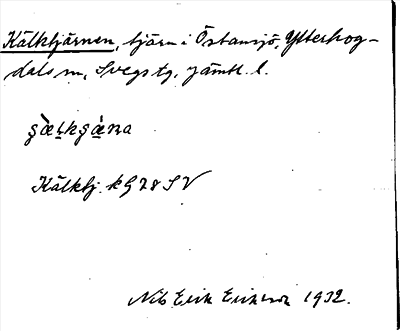 Kälktjärnen, tjärn i Östansjö, Ytterhog-
dals sn, Svegs tg, Jämtl. l.
Kälktj. kG 28 SV
Nils Erik Erikson 1932.